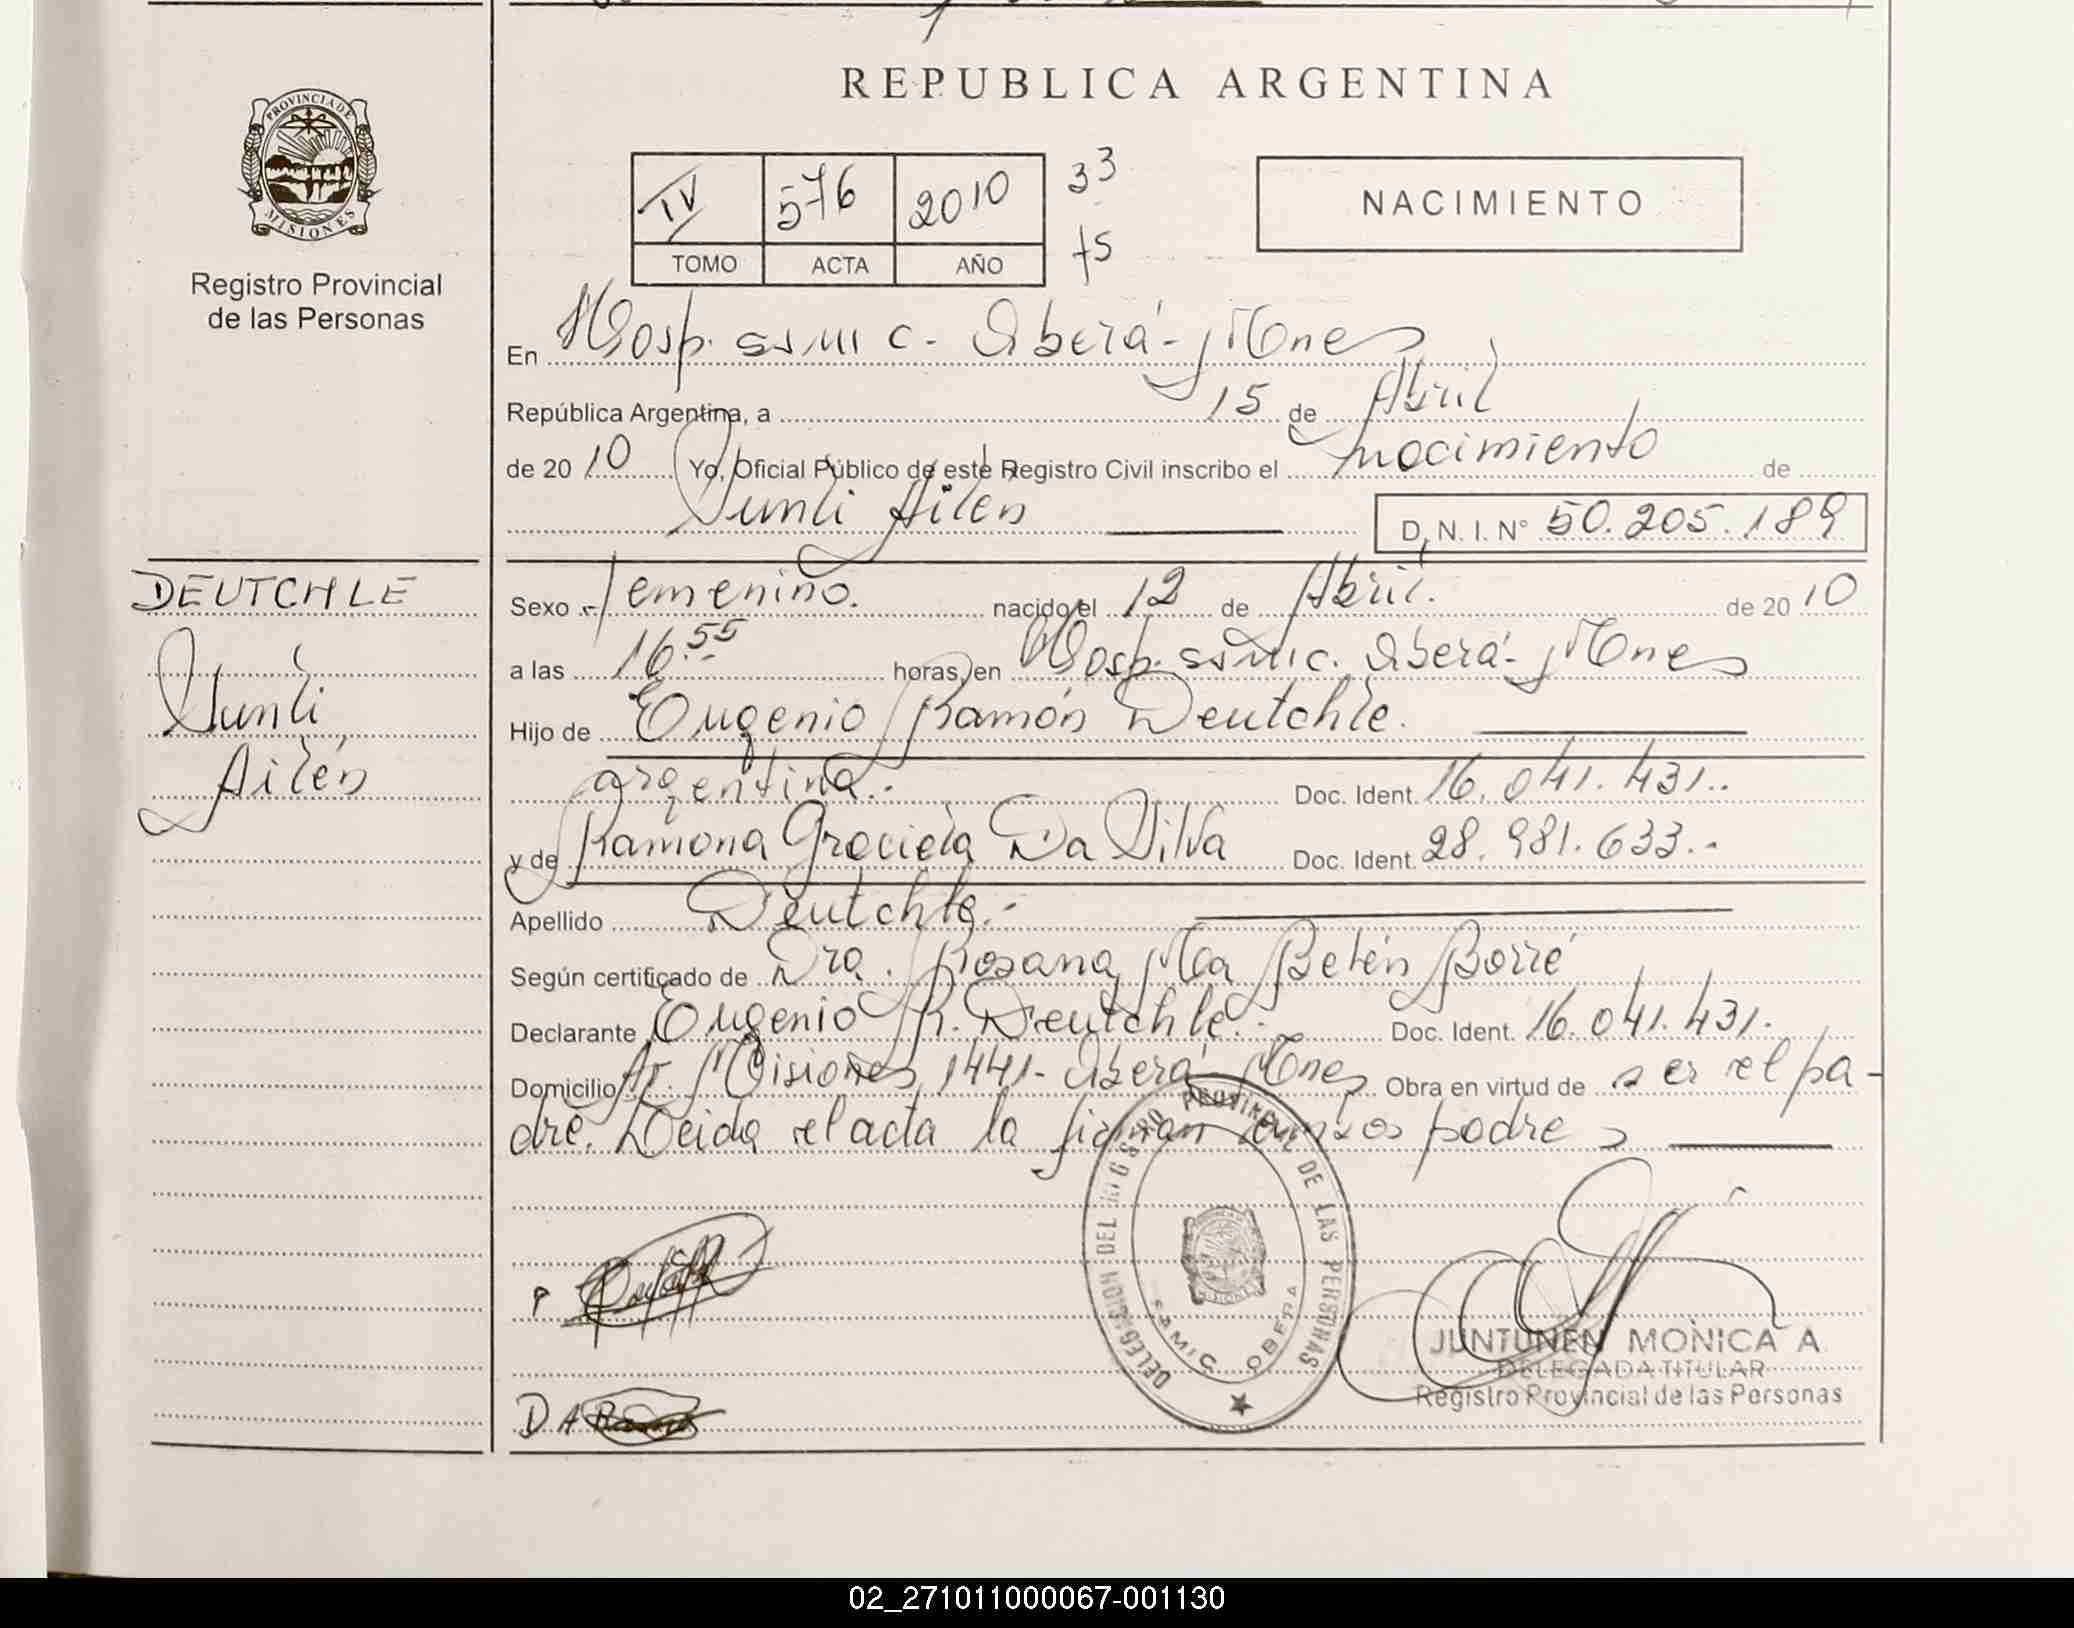 REPUBLICA ARGENTINA
PROVINCIA DE
MISIONES
Registro Provincial
de las Personas
IV 576 2010 33
TOMO ACTA AÑO 75
NACIMIENTO
En Hosp. SAMIC. Oberá - Mnes
República Argentina, a 15 de Abril
de 2010 Yo, Oficial Público de este Registro Civil inscribo el nacimiento de
Yunli Ailén
D. N. I. N° 50.205.189
DEUTCHLE
Yunli
Ailén
Sexo femenino. nacido el 12 de Abril. de 2010
a las 16.55 horas, en Hosp. SAMIC. Oberá - Mnes
Hijo de Eugenio Ramón Deutchle.
argentina.- Doc. Ident. 16.041.431.-
y de Ramona Graciela Da Silva Doc. Ident. 28.981.633.-
Apellido Deutchle.-
Según certificado de Dra. Rosana Ma Belén Borré
Declarante Eugenio R. Deutchle.- Doc. Ident. 16.041.431.
Domicilio Av. Misiones 1441- Oberá - Mnes Obra en virtud de ser el pa-
dre. Leída el acta la firman ambos padres
DELEGACION DEL REGISTRO PROVINCIAL DE LAS PERSONAS
SAMIC OBERA
JUNTUNEN MONICA A
DELEGADA TITULAR
Registro Provincial de las Personas
P
DA
02_271011000067-001130